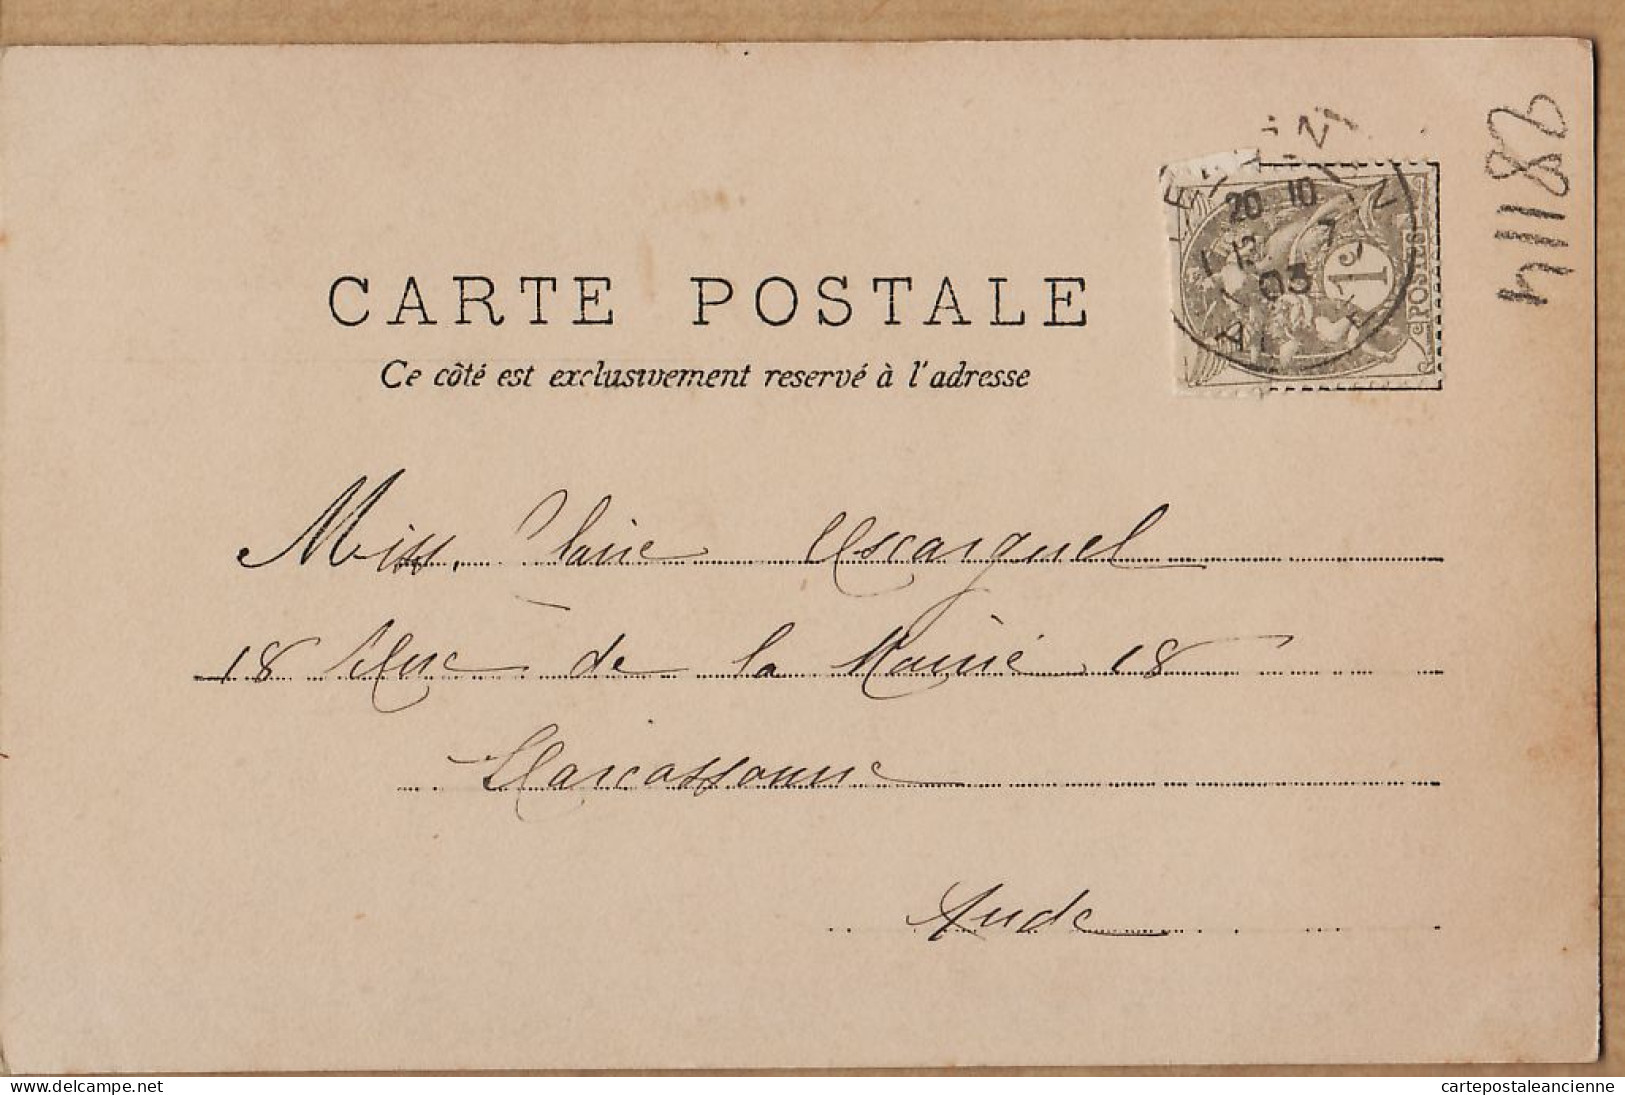 h1188
20 10
12 7
03
1c
POSTES
CARTE POSTALE
Ce côté est exclusivement reservé à l'adresse
Miss. Claire Escarguel
18 Rue de la Mairie 18
Carcassonne
Aude
www.delcampe.net
cartepostaleancienne